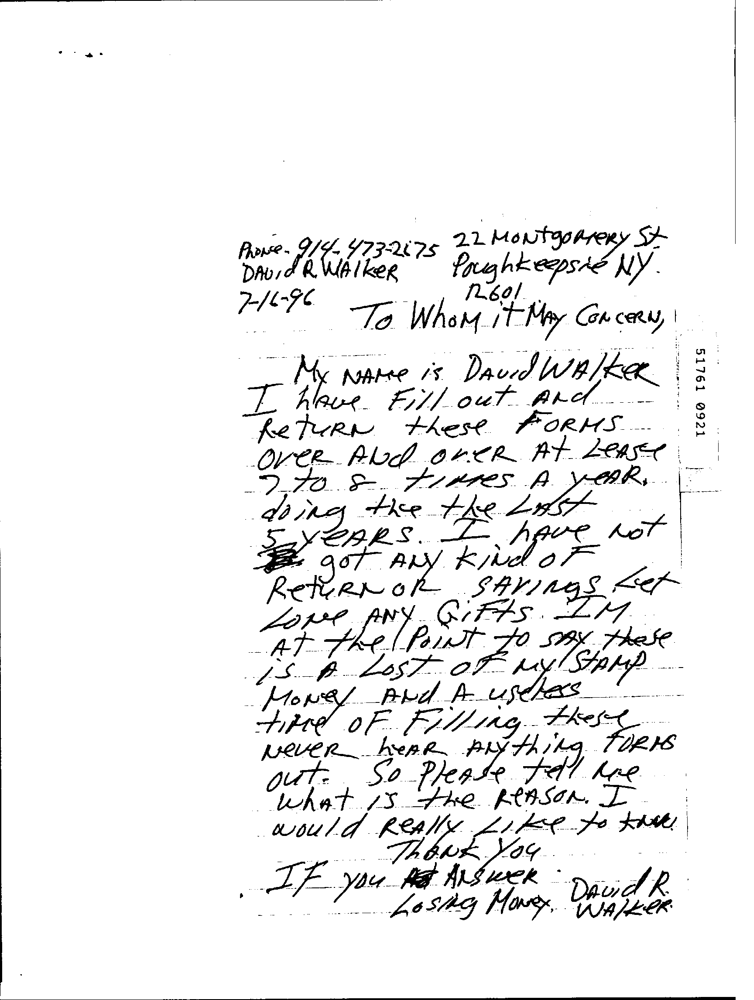 Phone - 914-473-2675
David R Walker
7-16-96
22 Montgomery St
Poughkeepsie NY.
12601
To Whom it May Concern,
My name is David Walker
I have Fill out and
Return these Forms
over and over At Lease
7 to 8 times A year.
doing the the Last
5 years. I have not
got Any Kind of
Return or savings Let
Lone Any Gifts. IM
At the Point to say these
is A Lost of my Stamp
Money And A useless
time of Filling these
never hear Anything forms
out. So Please tell me
what is the Reason. I
would Really Like to know
Thank You
If you Answer
Losing Money. David R.
Walker
51761 0921